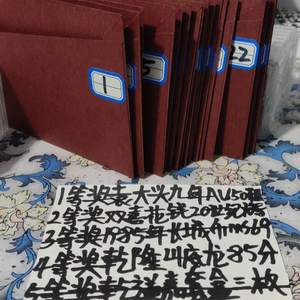 1
5
22
1等奖袁大头九年AU50和
2等奖双莲花钱20世纪横
3等奖1985年长城币ms69
4等奖乾隆山底龙85分
5等奖乾送嘉套盒二枚